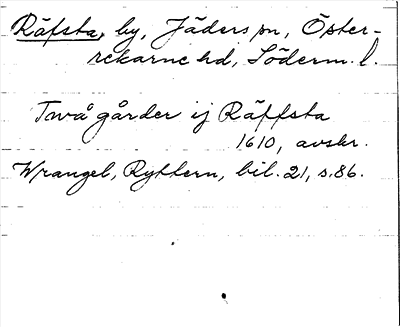 Räfsta, by, Jäders sn, Öster-
rekarne hd, Söderm. l.
Twå gårder ij Räffsta
1610, avskr.
Wrangel, Ryttern, bil. 21, s. 86.